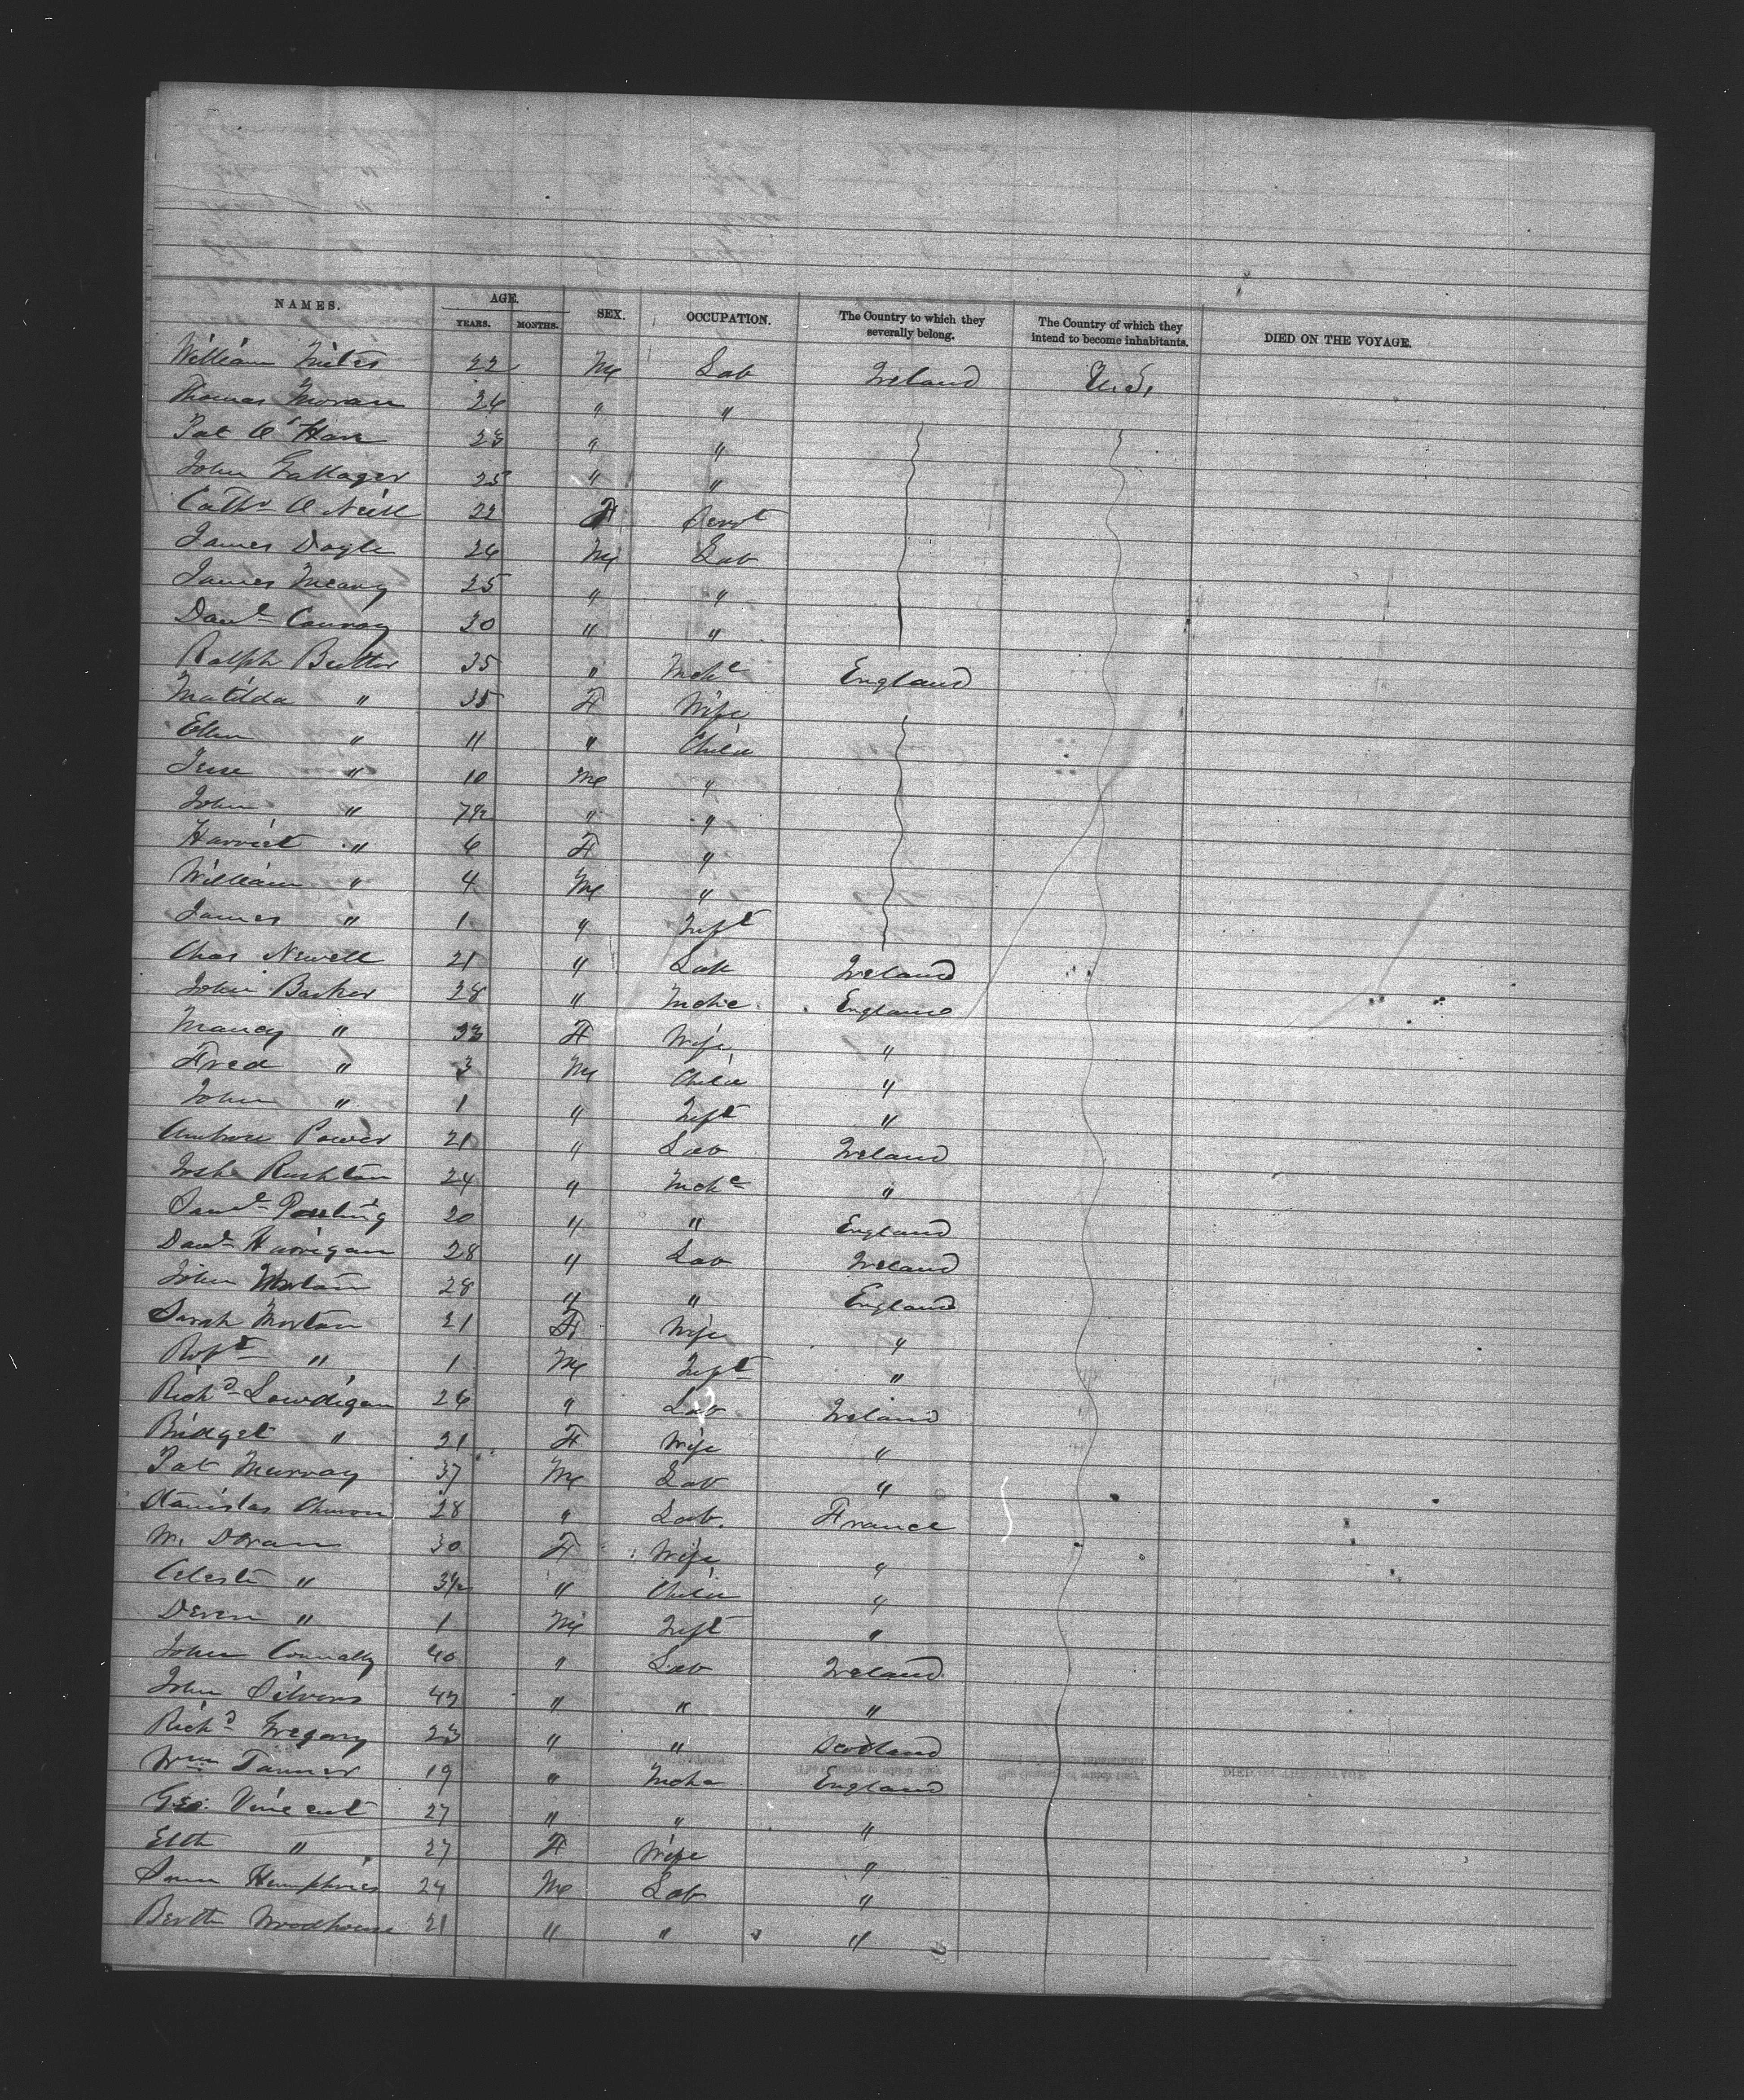 NAMES. AGE. SEX. OCCUPATION. The Country to which they severally belong. The Country of which they intend to become inhabitants. DIED ON THE VOYAGE.
YEARS. MONTHS.
William 22 M Lab Ireland U.S.
Thomas Moran 24 " "
Pat O'Hare 23 " "
John Gallager 25 " "
Cathr O Neill 22 F Servt
James Dogle 24 M Lab
James Meany 25 " "
Danl Conroy 30 " "
Ralph Butter 35 " Mche England
Matilda " 35 F Wife
Ellen " 11 " Child
" 10 M "
John " 7½ " "
Harriet " 6 F "
William " 4 M "
James " 1 " Inft
Chas Newell 21 " Lab Ireland
John Barker 28 " Mche England
Nancy " 23 F Wife "
Fred " 3 M Child "
John " 1 " Inft "
Ambrose Power 21 " Lab Ireland
Rushton 24 " Mche "
Saml 20 " " England
Danl Harrigan 28 " Lab Ireland
John Morton 28 " " England
Sarah Morton 21 F Wife "
Robt " 1 M Inft "
Richd Lowdigan 26 " Lab Ireland
Bridget " 21 F Wife "
Pat Murray 37 M Lab "
Stanislas 28 " Lab. France
30 F Wife "
Celestn " 3½ " Child "
" 1 M Inft "
John Connally 40 " Lab Ireland
John Silvers 42 " " "
Richd Gregory 23 " " Scotland
Wm Tanner 19 " Mche England
Geo. Vincent 27 " " "
Elth " 27 F Wife "
Humphries 24 M Lab "
Berth Woodhouse 21 " " "